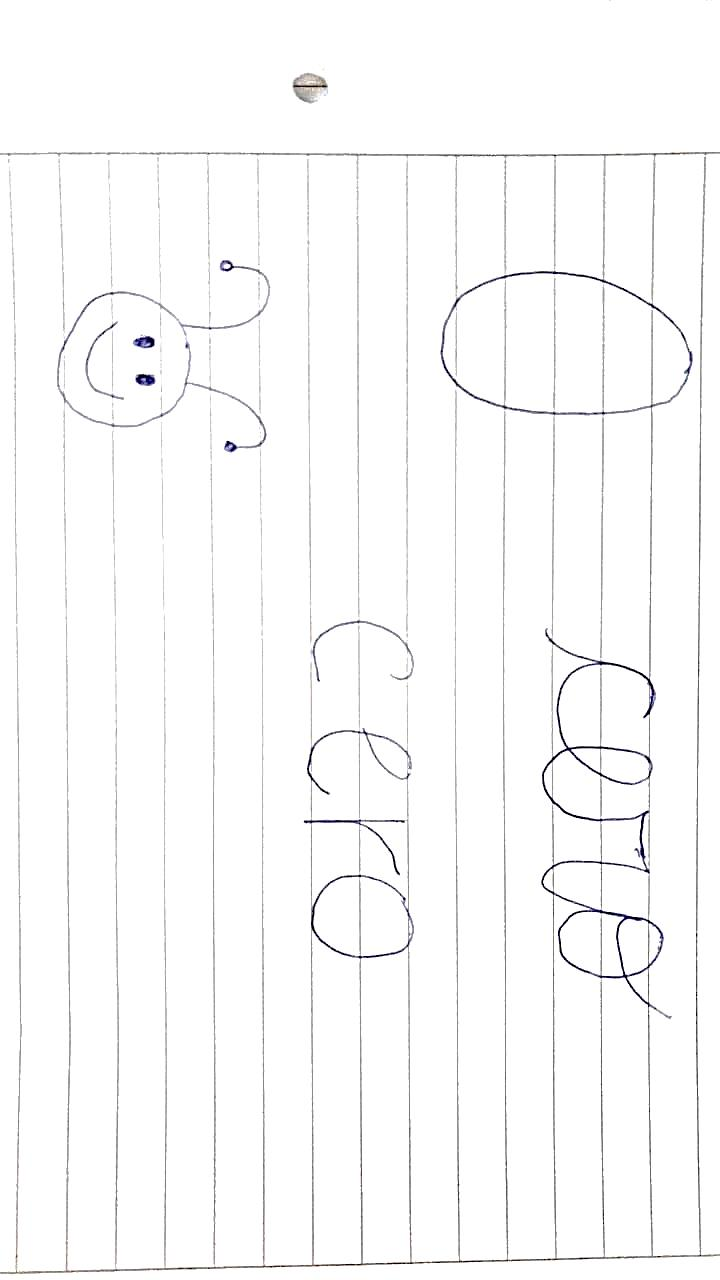 0 cero
cero